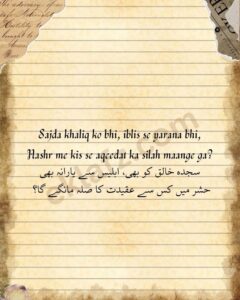 Sajda khaliq ko bhi, iblis se yarana bhi,
Hashr me kis se aqeedat ka silah maange ga?
سجدہ خالق کو بھی، ابلیس سے یارانہ بھی
حشر میں کس سے عقیدت کا صلہ مانگے گا؟